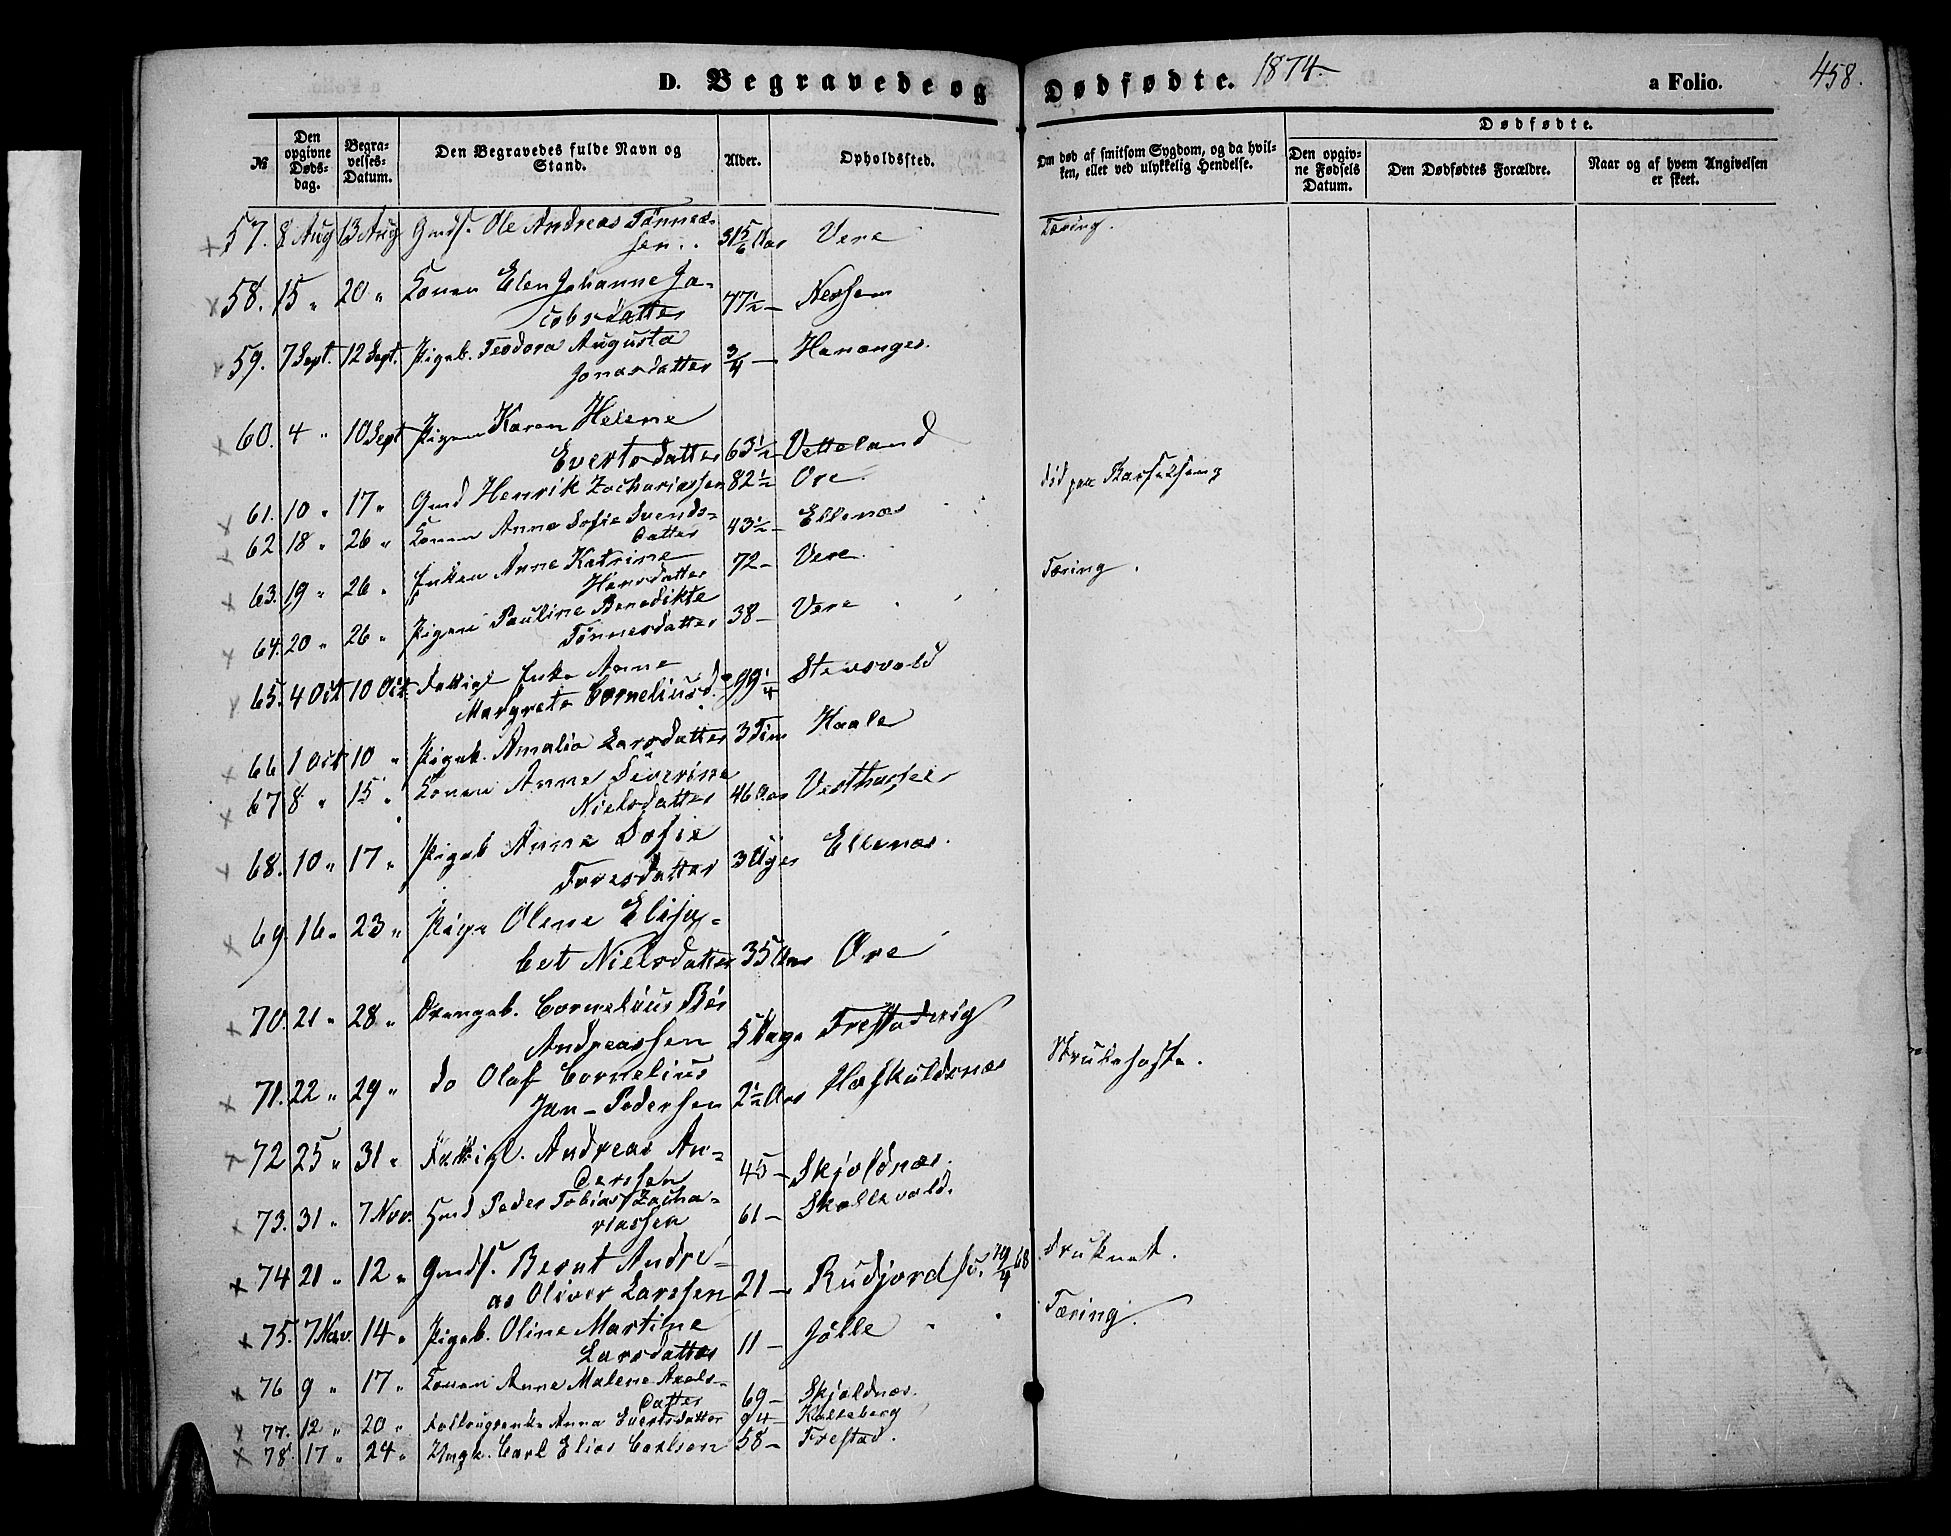 D. Begravede og Dødfødte. 1874
a Folio. 458.
№
Den opgivne Døds-dag.
Begra-velses-Datum.
Den Begravedes fulde Navn og Stand.
Alder.
Opholdssted.
Om død af smitsom Sygdom, og da hvil-ken, eller ved ulykkelig Hendelse.
Dødfødte.
Den opgiv-ne Fødsels Datum.
Den Dødfødtes Forældre.
Naar og af hvem Angivelsen er skeet.
57. 8 Aug 13 Aug Gmds. Ole Andreas Tønnes-
sen 31 5/6 Aar Vere Tæring.
58. 15 " 20 " Konen Elen Johanne Ja-
cobsdatter 77½ –
59. 7 Sept. 12 Sept. Pigeb. Teodora Augusta
Jonasdatter ¾ – Hananger.
60. 4 " 10 Sept Pigen Karen Helene
Evertsdatter 63½ – Vetteland
61. 10 " 17 " Gmd Henrik Zachariassen 82½ Ore
62 18 " 26 " Konen Anne Sofie Svends-
datter 43½ – Ellenæs død paa Barselseng
63. 19 " 26 " Enken Anne Katrine
Hansdatter 72 – Vere
64. 20 " 26 " Pigen Pauline Benedikte
Tønnesdatter 38 – Vere Tæring.
65. 4 Oct. 10 Oct. Fattigl Enke Anne
Margrete Corneliusd. 99¼ Stensvold
66 1 Oct 10 " Pigeb. Amalia Larsdatter 3 Tim Kaale
67 8 " 15 " Konen Anne Severine
Nielsdatter 46 Aar
68. 10 " 17 " Pigeb Anne Sofie
Toresdatter 3 Uger Ellenæs.
69. 16 " 23 " Pige Olene Elisa-
bet Nielsdatter 35 Aar Ore
70. 21 " 28 " Drengeb. Cornelius
Andreassen 5 Dage
71. 22 " 29 " do Olaf Cornelius
Jan-Pedersen 2½ Aar Strubehoste.
72 25 " 31 " Fattigl. Andreas An-
derssen 45 – Skjoldnæs.
73. 31 " 7 Nov. Gmd Peder Tobias Zacha-
riassen 61 – Skollevold.
74 21 " 12 " Gmds. Bernt Andre-
as Oliver Larssen 21 – Rudjord Druknet.
75. 7 Nov 14 " Pigeb. Oline Martine
Larsdatter 11 – Jølle Tæring.
76 9 " 17 " Konen Anne Malene Axels-
datter 69 – Skjoldnæs.
77. 12 " 20 " Anna Evertsdatter 94 – Kalleberg
78. 17 " 24 " Ungk. Carl Elias Carlsen 58 – Frestad.